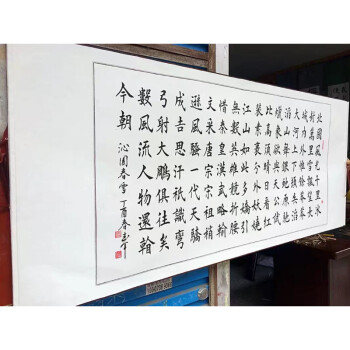 北國風光千里冰
封萬里雪飄望長
城内外惟餘莽莽
大河上下頓失滔
滔山舞銀蛇原馳
蠟象欲與天公試
比高須晴日看紅
裝素裹分外妖嬈
江山如此多嬌引
無數英雄競折腰
惜秦皇漢武略輸
文采唐宗宋祖稍
遜風騷一代天驕
成吉思汗祇識彎
弓射大鵰俱往矣
數風流人物還看
今朝
沁園春雪 丁酉春